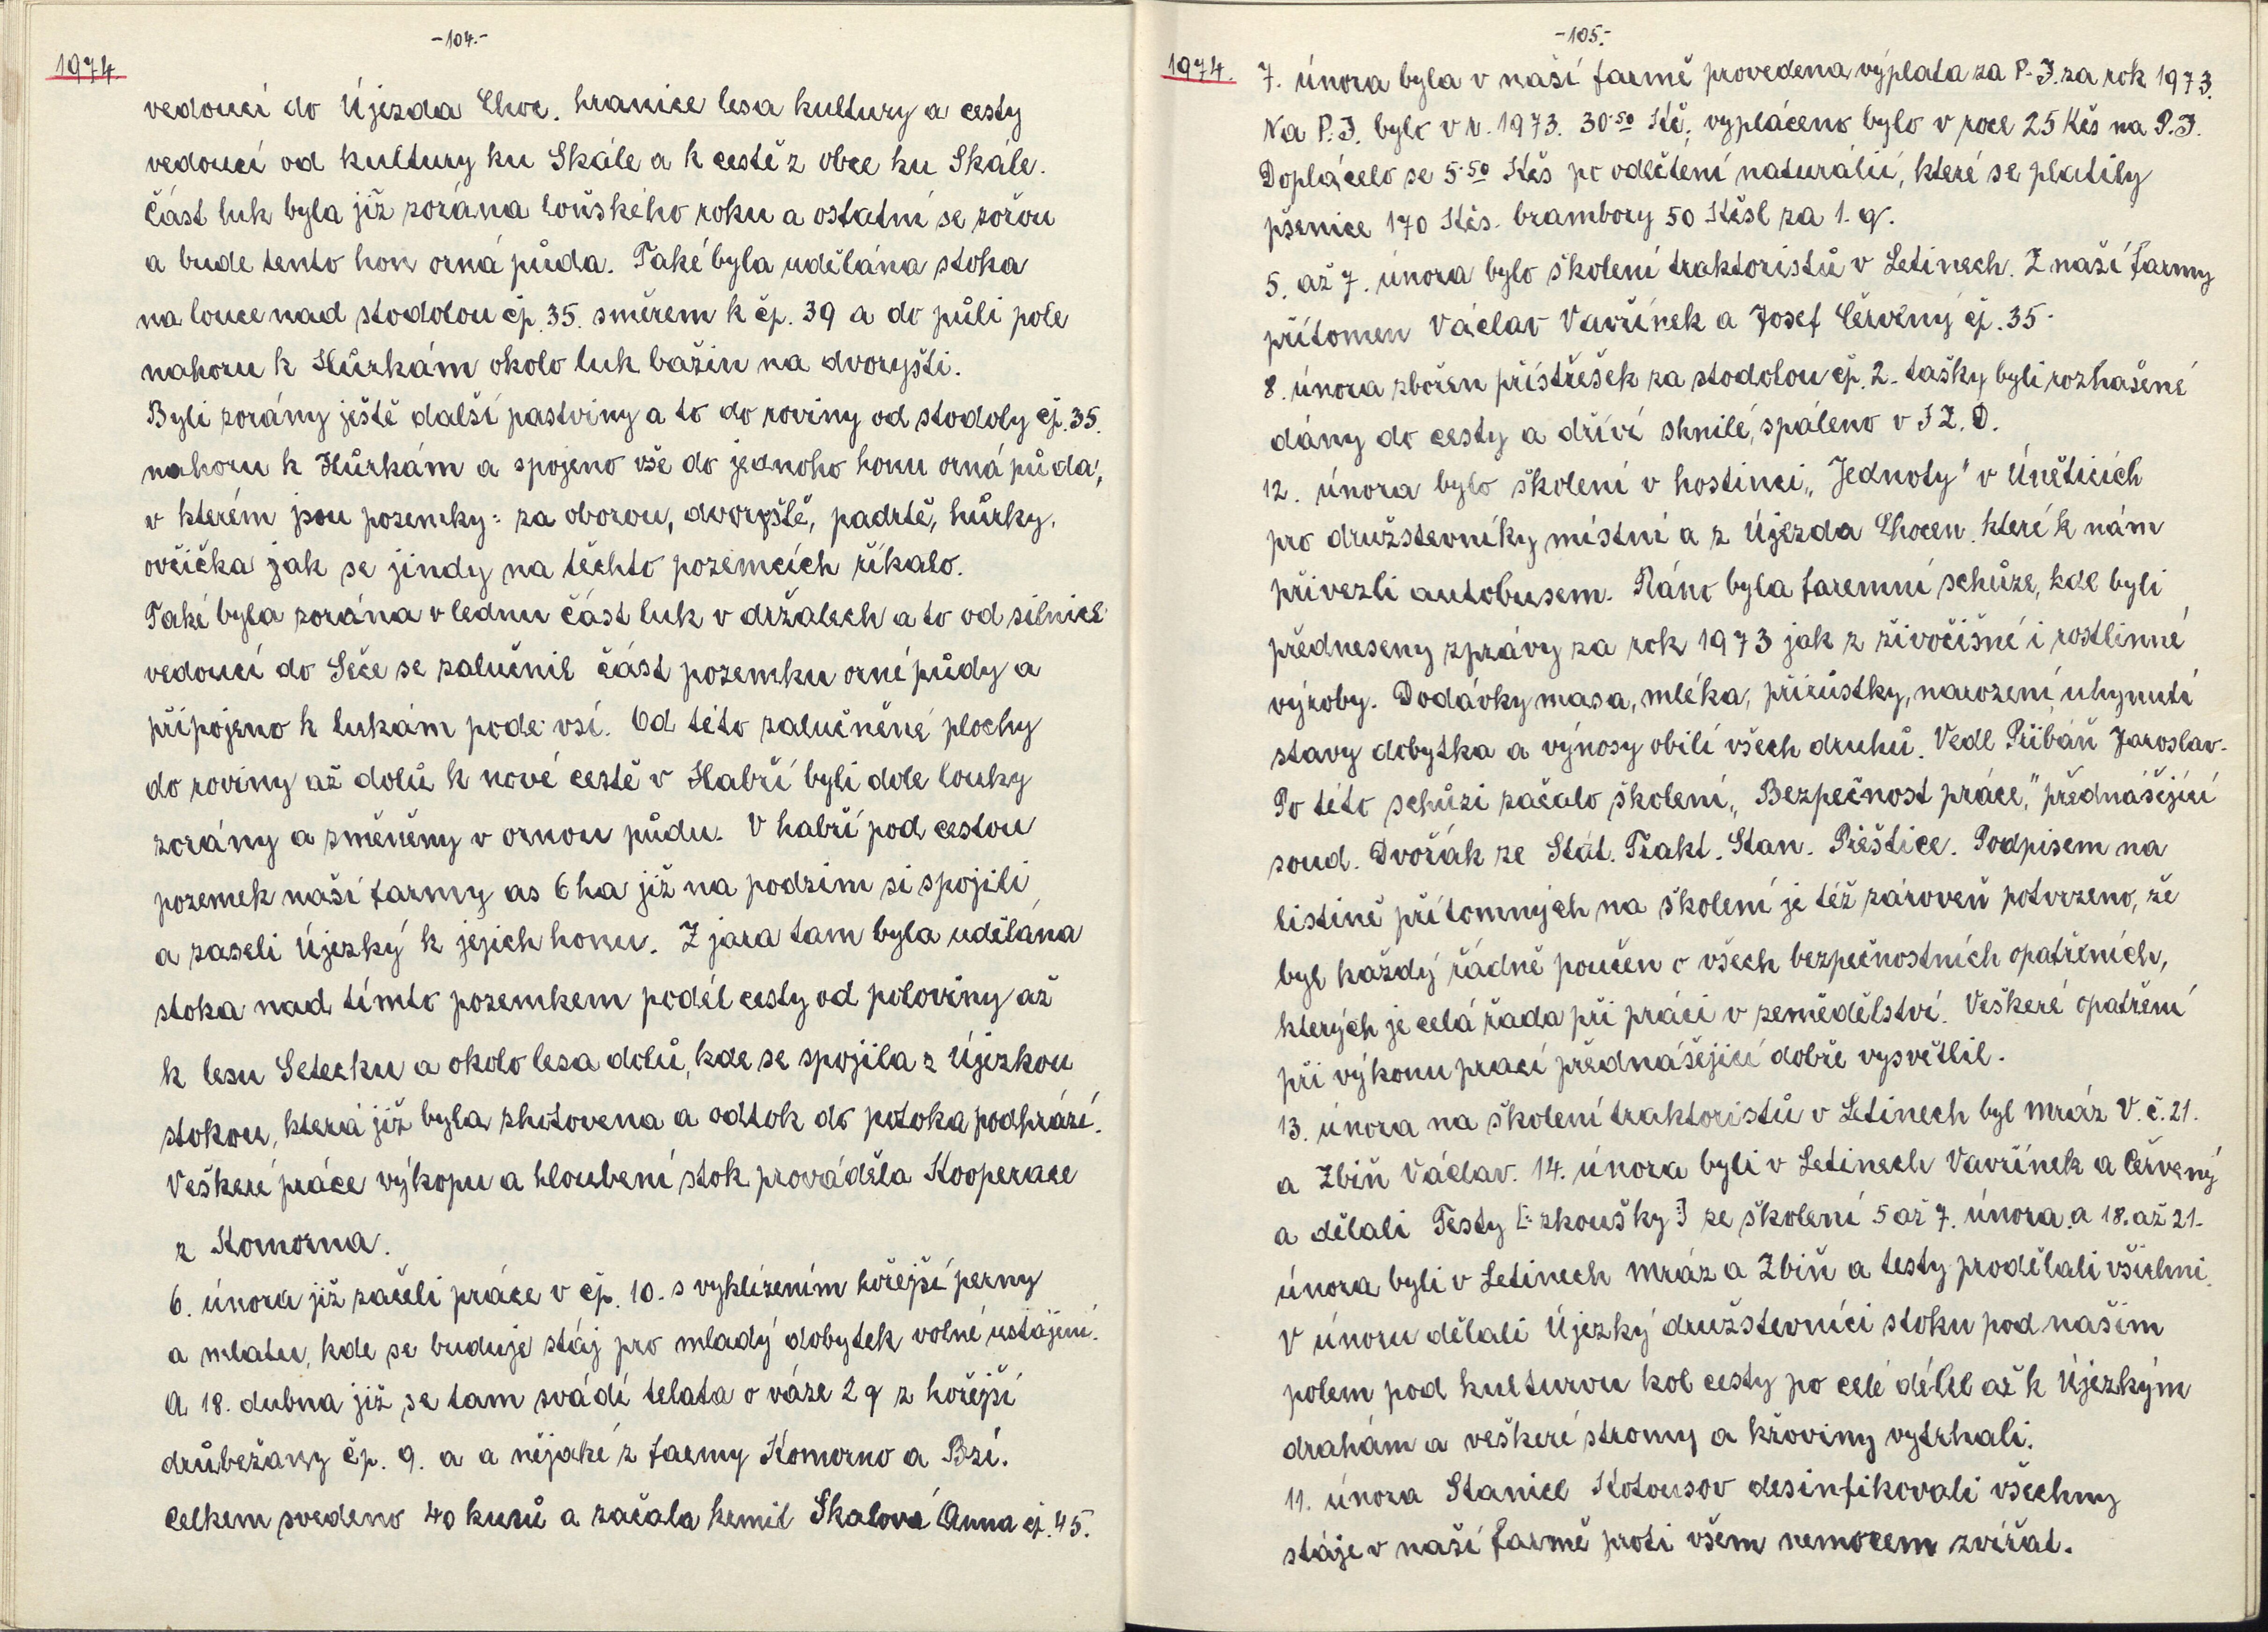 -104.-
1974.
vedoucí do Újezda Choc. hranice lesa kultury a cesty
vedoucí od kultury ku Skále a k cestě z obce ku Skále.
část luk byla již zorána loňského roku a ostatní se zořou
a bude tento hon orná půda. Také byla udělána stoka
na louce nad stodolou čp. 35. směrem k čp. 39 a do půli pole
nahoru k Hůrkám okolo luk bažin na dvoryšti.
Byli zorány ještě další pastviny a to do roviny od stodoly čp. 35.
nahoru k Hůrkám a spojeno vše do jednoho honu orná půda,
v kterém jsou pozemky: za oborou, dvoryště, padrtě, hůrky,
ovčička jak se jindy na těchto pozemcích říkalo.
Také byla zorána v lednu část luk v držalech a to od silnice
vedoucí do Seče se zalučnil část pozemku orné půdy a
připojeno k lukám pode vsí. Od této zalučněné plochy
do roviny až dolů k nové cestě v Habří byli dole louky
zorány a změněny v ornou půdu. V habří pod cestou
pozemek naší farmy as 6 ha již na podzim si spojili
a zaseli Újezký k jejich honu. Z jara tam byla udělána
stoka nad tímto pozemkem podél cesty od poloviny až
k lesu Setecku a okolo lesa dolů, kde se spojila z Újezkou
stokou, která již byla zhotovena a odtok do potoka podhrází.
Veškeré práce výkopu a hloubení stok prováděla Kooperace
z Komorna.
6. února již začali práce v čp. 10. s vyklízením hořejší perny
a mlatu, kde se buduje stáj pro mladý dobytek volné ustájení.
A 18. dubna již se tam svádí telata o váze 2 q z hořejší
drůbežárny čp. 9. a a nějaké z farmy Komorno a Bzí.
Celkem svedeno 40 kusů a začala krmit Skalová Anna čp. 45.
-105.-
1974.
7. února byla v naší farmě provedena výplata za P.J. za rok 1973.
Na P.J. bylo v r. 1973. 30.50 Kč, vypláceno bylo v roce 25 Kčs na P.J.
Doplácelo se 5.50 Kčs po odečtení naturálií, které se platily
pšenice 170 Kčs. brambory 50 Kčsl za 1. q.
5. až 7. února bylo školení traktoristů v Letinech. Z naší farmy
přítomen Václav Vavřínek a Josef Červený čp. 35.
8. února zbořen přístřešek za stodolou čp. 2. tašky byli rozhašené
dány do cesty a dříví shnilé, spáleno v J Z. D.
12. února bylo školení v hostinci „Jednoty" v Únětících
pro družstevníky místní a z Újezda Chocen. které k nám
přivezli autobusem. Ráno byla faremní schůze, kde byli
předneseny zprávy za rok 1973 jak z živočišné i rostlinné
výroby. Dodávky masa, mléka, přírůstky, narození, uhynutí
stavy dobytka a výnosy obilí všech druhů. Vedl Přibáň Jaroslav.
Po této schůzi začalo školení „Bezpečnost práce," přednášející
soud. Dvořák ze Stát. Trakt. Stan. Přeštice. Podpisem na
listině přítomných na školení je též zároveň potvrzeno, že
byl každý řádně poučen o všech bezpečnostních opatřeních,
kterých je celá řada při práci v zemědělství. Veškeré opatření
při výkonu prací přednášející dobře vysvětlil.
13. února na školení traktoristů v Letinech byl Mráz V. č. 21.
a Zbiň Václav. 14. února byli v Letinech Vavřínek a Červený
a dělali Testy [: zkoušky :] ze školení 5 až 7. února a 18. až 21.
února byli v Letinech Mráz a Zbiň a testy prodělali všichni.
V únoru dělali Újezký družstevníci stoku pod naším
polem pod kulturou kol cesty po celé délce až k Újezkým
drahám a veškeré stromy a křoviny vytrhali.
11. února Stanice Kotousov desinfikovali všechny
stáje v naší farmě proti všem nemocem zvířat.